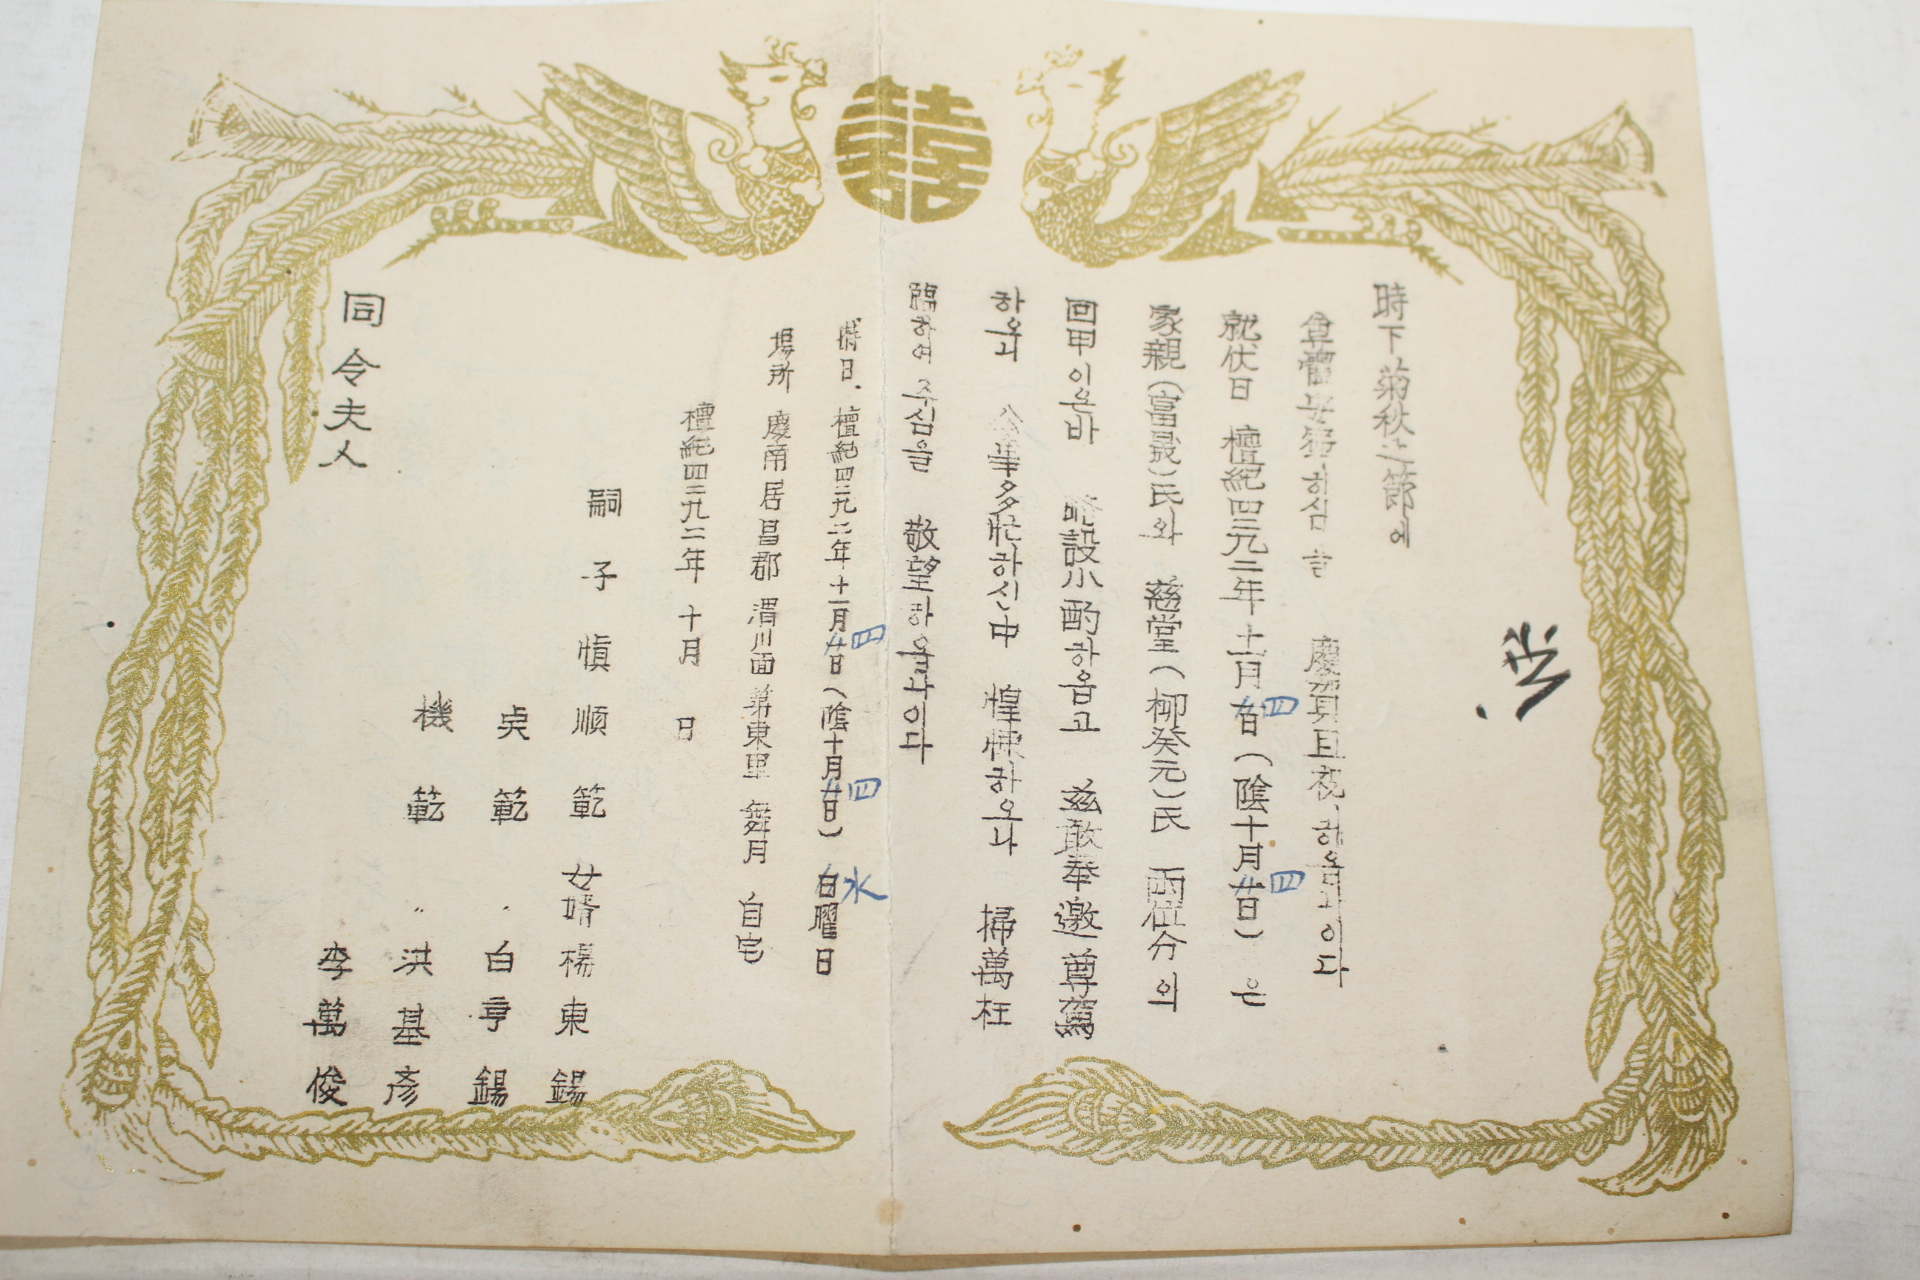 囍
時下菊秋之節에
尊體安寧하심을 慶賀且祝하옵나이다
就伏白 檀紀四二九二年 十一月廿四日(陰十月廿四日)은
家親(富晟)氏와 慈堂(柳癸元)氏 兩位分의
回甲이온바 略設小酌하옵고 玆敢奉邀尊駕
하오니 公事多忙하신中 惶悚하오나 掃萬枉
臨하여 주심을 敬望하옵나이다
時日、檀紀四二九二年十一月廿四日(陰十月廿四日)水曜日
場所 慶南居昌郡 渭川面 第東里 舞月 自宅
檀紀四二九二年 十月 日
嗣子 愼順範 女婿 楊東錫
範 〃 白亨錫
機範 〃 洪基彥
李萬俊
同令夫人